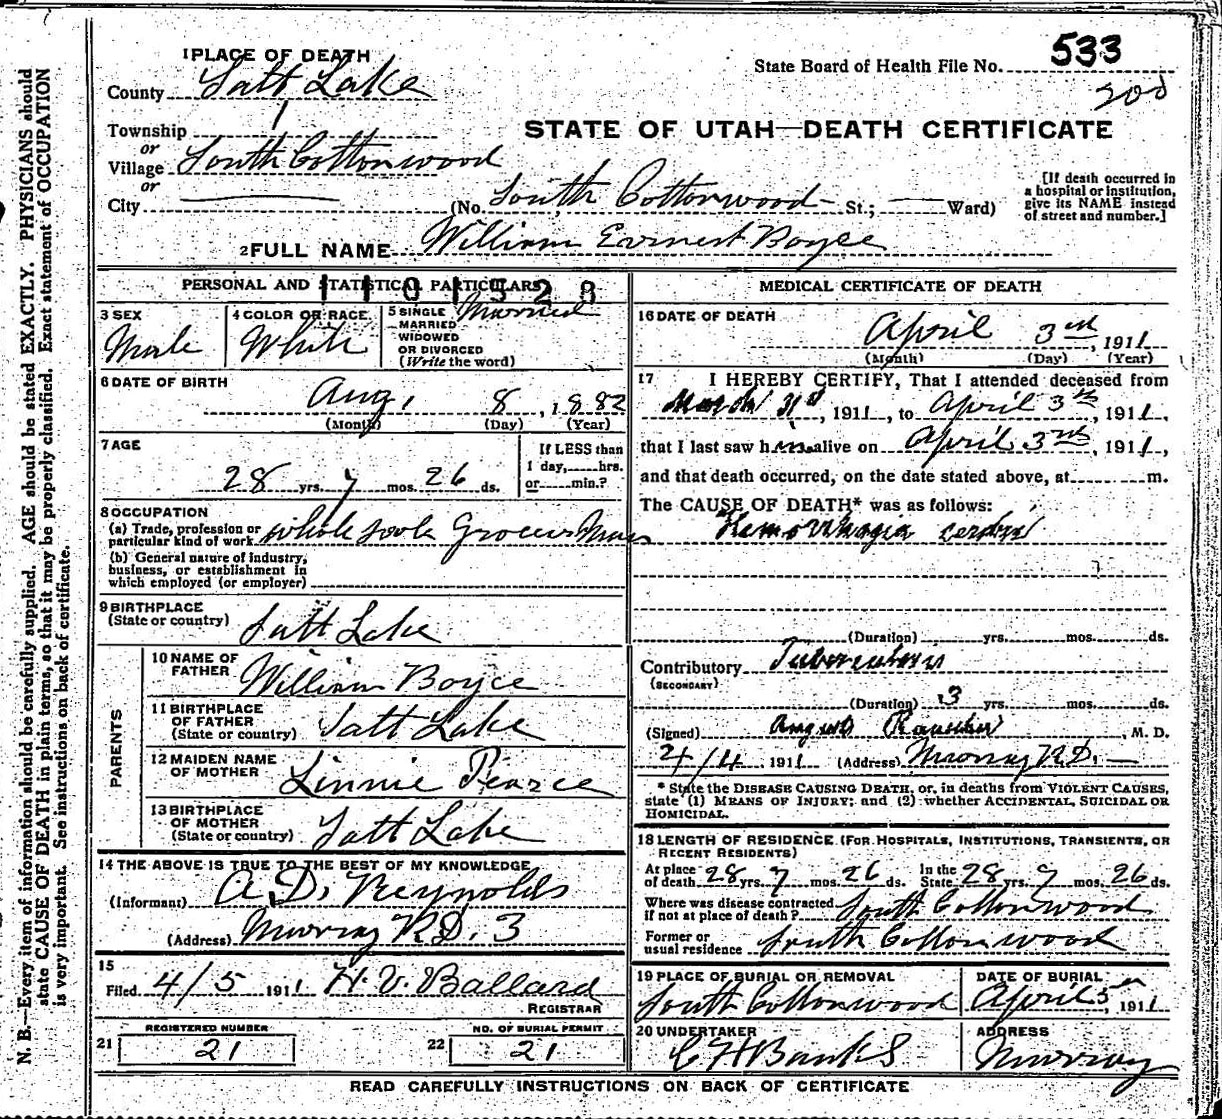 N. B.—Every item of information should be carefully supplied. AGE should be stated EXACTLY. PHYSICIANS should
state CAUSE OF DEATH in plain terms, so that it may be properly classified. Exact statement of OCCUPATION
is very important. See instructions on back of certificate.
1 PLACE OF DEATH
County Salt Lake
Township
or
Village South Cottonwood
or
City
State Board of Health File No. 533
200
STATE OF UTAH—DEATH CERTIFICATE
(No. South Cottonwood St.; Ward)
[If death occurred in
a hospital or institution,
give its NAME instead
of street and number.]
2 FULL NAME William Earnest Boyce
PERSONAL AND STATISTICAL PARTICULARS
1101528
3 SEX
Male
4 COLOR OR RACE
White
5 SINGLE
MARRIED
WIDOWED
OR DIVORCED
(Write the word)
Married
6 DATE OF BIRTH
Aug. 8, 1882
(Month) (Day) (Year)
7 AGE
28 yrs. 7 mos. 26 ds.
If LESS than
1 day, hrs.
or min.?
8 OCCUPATION
(a) Trade, profession or
particular kind of work whole sale Grocer Man
(b) General nature of industry,
business, or establishment in
which employed (or employer)
9 BIRTHPLACE
(State or country) Salt Lake
PARENTS
10 NAME OF
FATHER William Boyce
11 BIRTHPLACE
OF FATHER
(State or country) Salt Lake
12 MAIDEN NAME
OF MOTHER Linnie Pearce
13 BIRTHPLACE
OF MOTHER
(State or country) Salt Lake
14 THE ABOVE IS TRUE TO THE BEST OF MY KNOWLEDGE
(Informant) A. D. Reynolds
(Address) Murray R.D. 3
15
Filed 4/5 1911 H. V. Ballard
REGISTRAR
21 REGISTERED NUMBER
21
22 NO. OF BURIAL PERMIT
21
MEDICAL CERTIFICATE OF DEATH
16 DATE OF DEATH
April 3rd, 1911
(Month) (Day) (Year)
17 I HEREBY CERTIFY, That I attended deceased from
March 31st, 1911, to April 3rd, 1911,
that I last saw him alive on April 3rd, 1911,
and that death occurred, on the date stated above, at m.
The CAUSE OF DEATH* was as follows:
Hemorrhagia cerebri
(Duration) yrs. mos. ds.
Contributory Tuberculosis
(SECONDARY)
(Duration) 3 yrs. mos. ds.
(Signed) August M. D.
4/4 1911 (Address) Murray R.D.
* State the DISEASE CAUSING DEATH, or, in deaths from VIOLENT CAUSES,
state (1) MEANS OF INJURY; and (2) whether ACCIDENTAL, SUICIDAL OR
HOMICIDAL.
18 LENGTH OF RESIDENCE (FOR HOSPITALS, INSTITUTIONS, TRANSIENTS, OR
RECENT RESIDENTS)
At place
of death 28 yrs. 7 mos. 26 ds. In the
State 28 yrs. 7 mos. 26 ds.
Where was disease contracted
if not at place of death? South Cottonwood
Former or
usual residence South Cottonwood
19 PLACE OF BURIAL OR REMOVAL
South Cottonwood
DATE OF BURIAL
April 5th, 1911
20 UNDERTAKER
C H Banks
ADDRESS
Murray
READ CAREFULLY INSTRUCTIONS ON BACK OF CERTIFICATE